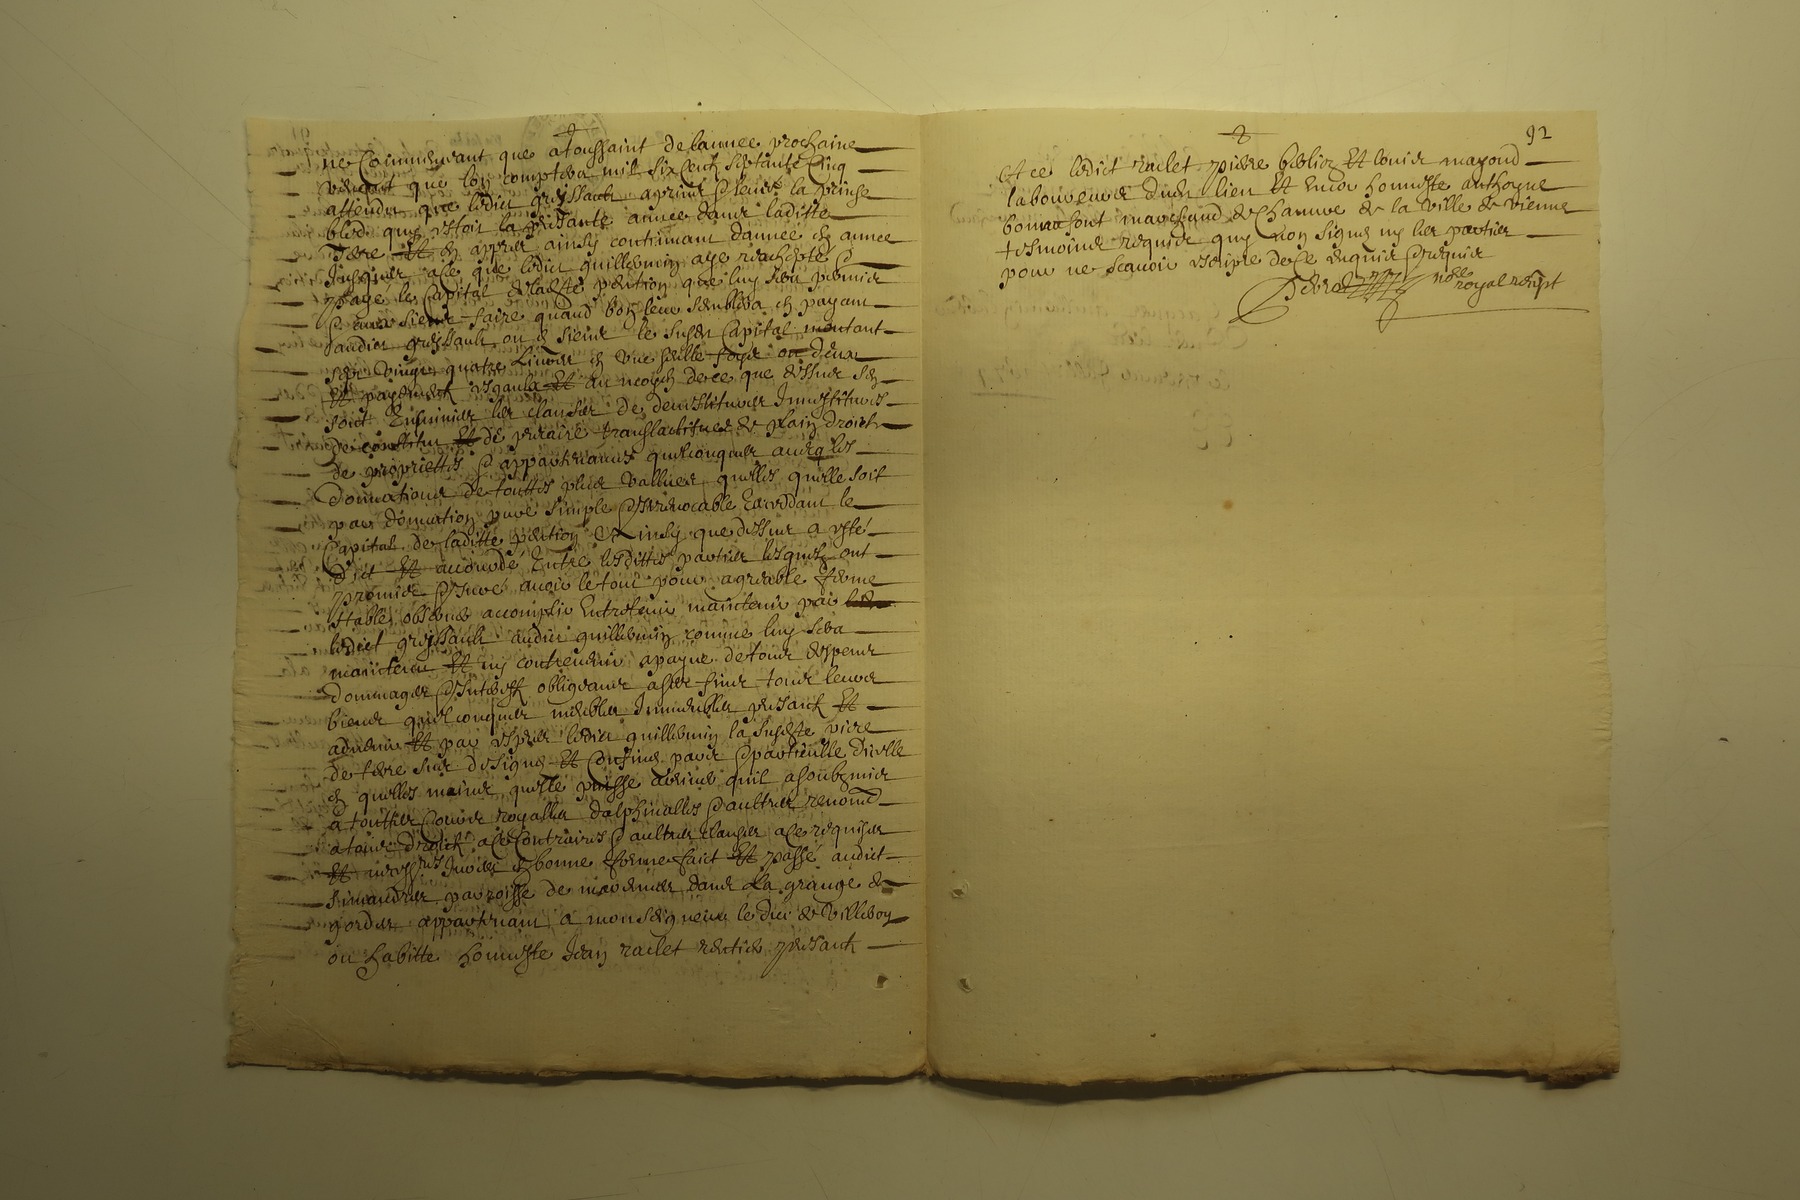 ne Commensant que a Toussaint de lannee prochaine
que lon comptera mil six cents septante Cinq
attendu que ledict greyssault a prins & leué la prinse
bled quy estoit la presante annee dans laditte
Terre Et de appres ainsy continuant dannee en annee
Jusques a ce que ledict guilliermin aye reachepté &
paye le Capital de laditte pention que luy sera permis
& aux siens faire quand bon leur semblera en payant
audict greyssault ou es siens le susdit Capital montant
sept vingts quatre Livres en une seulle foys ou deux
Et payements esgaulx Et au moyen de ce que dessus sen
sont Ensuivies les clauses de devestitures Investitures
de constitut Et de precaire translactifves de plain droict
de proprietes & appartenances quelconques auecq les
donnations de touttes plus vallues quelles quelle soit
par donnation pure simple & Irrevocable Excedant le
Capital de laditte pention Et ainsy que dessus a esté
dict Et accordé Entre lesdittes parties lesquels ont
promis & Juré avoir le tout pour agreable ferme
stable observer accomplir Entretenir maintenir par
ledict greyssault audict guilliermin comme luy sera
maintenir Et ny contrevenir a payne de tous despens
dommages & Interests obligeants a ses fins tous leurs
biens quelconques meubles Immeubles presants Et
advenir Et par expres ledict guilliermin la susditte piece
de terre sus designee Et Confinee part & particulle dicelle
en quelles mains quelle puisse advenir quil a soubzmis
a touttes Cours royalles dalphinalles & aultres renoncé
a tous droicts a ce Contraires & aultres clauses a ce requises
Et necessres Jurées en bonne forme faict Et passé audict
simandres parroisse de marennes dans la grange de
gordes appartenant a monseigneur le duc de Villeroy
ou habitte honneste Jean raclet rentier presant
92
Et ce ledict raclet pierre Et louis mayoud
laboureurs dudit lieu Et encor honneste anthoyne
bonnefont marchand de chanvre de la ville de Vienne
tesmoins requis quy non signé ny les parties
pour ne sçavoir escripre de ce enquis & requis
nore royal recept